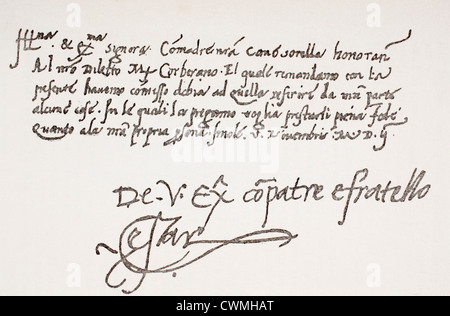 Illma. & Exma Signora. Comadre nra came sorella honoran
Al nro Diletto Mr Corberano. El quale remandamo con la
presente havemo comisso debia ad quella referire da nra parte
alcune cose. In le quali la pregamo voglia prestarli piena fede
Quanto ala nra propria psona. Imole. V. Novembris. M. D. ij
De. V. Exa cōpatre e fratello
Cesar
alamy
CWMHAT
www.alamy.com